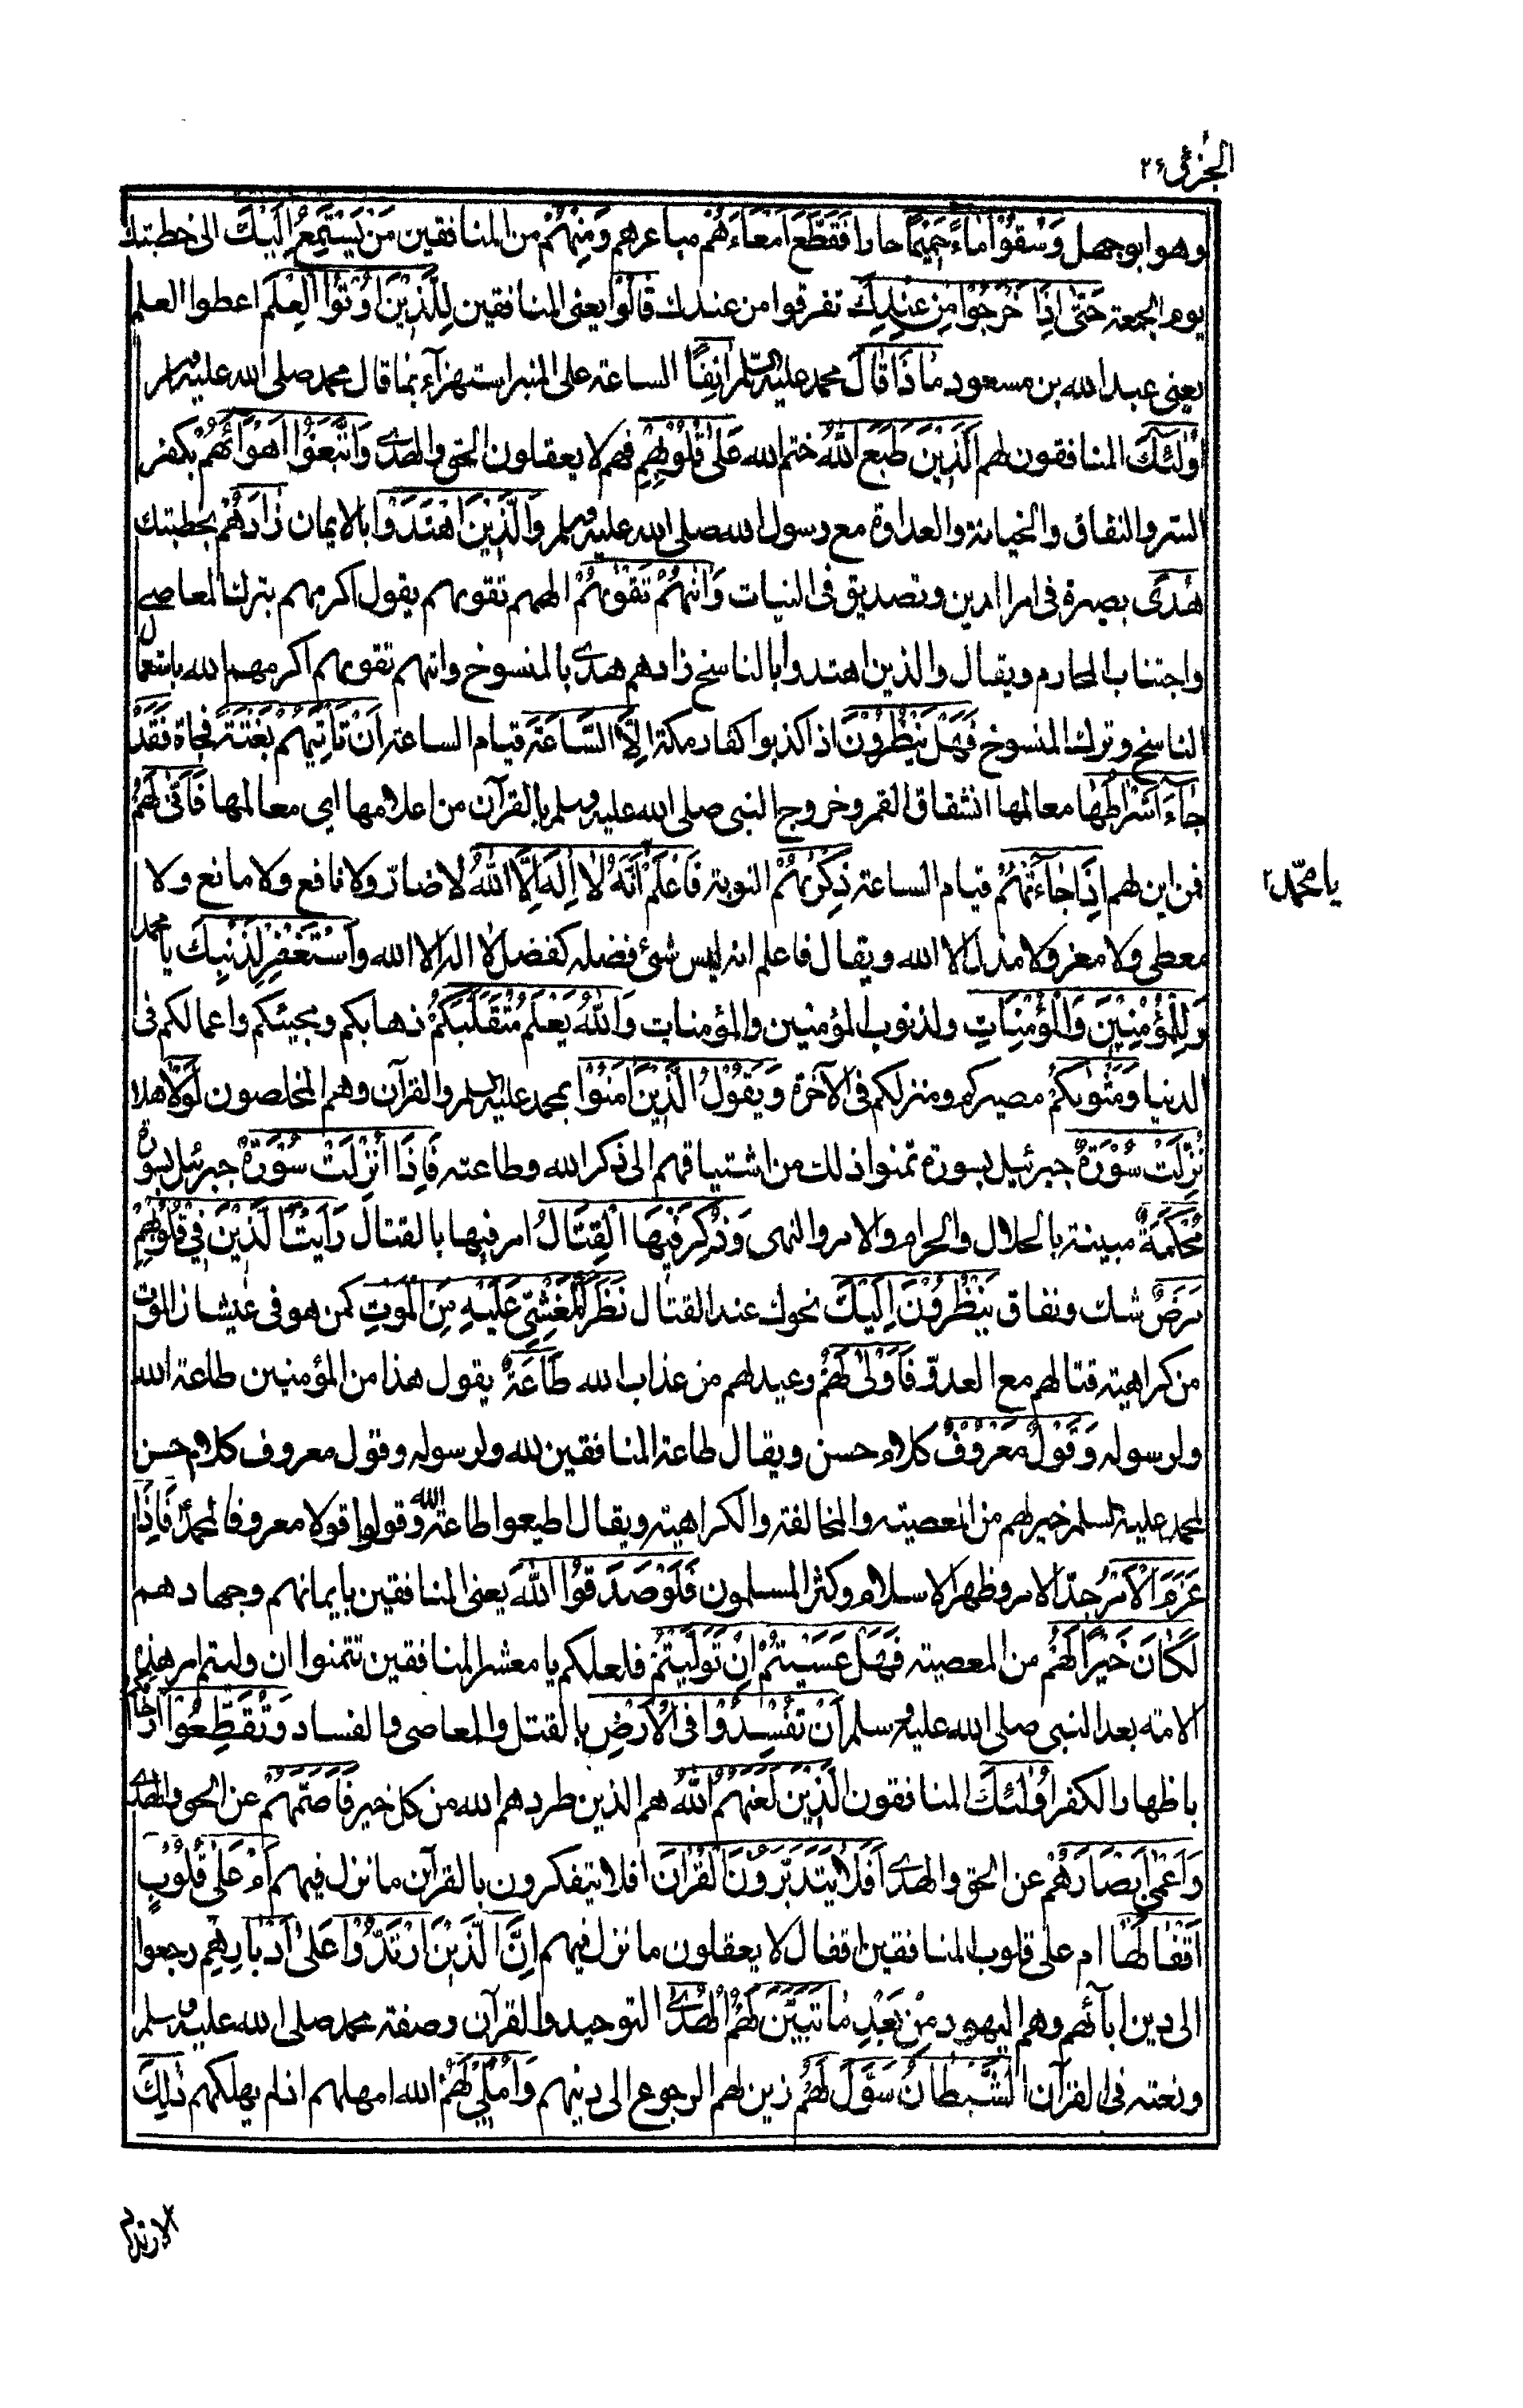 الجزؤ ٢٦
وهو ابو جهل وَسُقُوْا مَاءً حَمِيْمًا حارا فَقَطَّعَ اَمْعَاءَهُمْ مباعرهم وَمِنْهُمْ من المنافقين مَنْ يَسْتَمِعُ اِلَيْكَ الى خطبتك
يوم الجمعة حَتّٰى اِذَا خَرَجُوْا مِنْ عِنْدِكَ تفرقوا من عندك قَالُوْا يعنى المنافقين لِلَّذِيْنَ اُوْتُوا الْعِلْمَ اعطوا العلم
يعنى عبد الله بن مسعود مَاذَا قَالَ محمد عليه السلم اٰنِفًا الساعة على المنبر استهزآء بما قال محمد صلى الله عليه وسلم
اُولٰئِكَ المنافقون لهم الَّذِيْنَ طَبَعَ اللّٰهُ ختم الله عَلٰى قُلُوْبِهِمْ فهم لا يعقلون الحق والهدى وَاتَّبَعُوْا اَهْوَاءَهُمْ بكفر
السر والنفاق والخيانة والعداوة مع رسول الله صلى الله عليه وسلم وَالَّذِيْنَ اهْتَدَوْا بالايمان زَادَهُمْ بخطبتك
هُدًى بصيرة فى امر الدين وتصديق فى النيات وَاٰتٰهُمْ تَقْوٰىهُمْ الهمهم تقوىهم يقول اكرمهم بترك المعاصى
واجتناب المحارم ويقال والذين اهتدوا بالناسخ زادهم هدى بالمنسوخ واتٰهم تقوىهم اكرمهم الله باستعمال
الناسخ وترك المنسوخ فَهَلْ يَنْظُرُوْنَ اذ كذبوا كفار مكة اِلَّا السَّاعَةَ قيام الساعة اَنْ تَأْتِيَهُمْ بَغْتَةً فجاة فَقَدْ
جَآءَ اَشْرَاطُهَا معالمها انشقاق القمر وخروج النبى صلى الله عليه وسلم بالقرآن من اعلامها اى معالمها فَاَنّٰى لَهُمْ
فمن اين لهم اِذَا جَآءَتْهُمْ قيام الساعة ذِكْرٰىهُمْ التوبة فَاعْلَمْ اَنَّهُ لَا اِلٰهَ اِلَّا اللّٰهُ لا ضارّ ولا نافع ولا مانع ولا
يا محمد
معطى ولا معز ولا مذل الا الله ويقال فاعلم انه ليس شئ فضله كفضل لا اله الا الله وَاسْتَغْفِرْ لِذَنْبِكَ يا محمد
وَلِلْمُؤْمِنِيْنَ وَالْمُؤْمِنَاتِ ولذنوب المؤمنين والمؤمنات وَاللّٰهُ يَعْلَمُ مُتَقَلَّبَكُمْ ذهابكم ومجيئكم واعمالكم فى
الدنيا وَمَثْوٰىكُمْ مصيركم ومنزلكم فى الآخرة وَيَقُوْلُ الَّذِيْنَ اٰمَنُوْا بمحمد عليه السلم والقرآن وهم المخلصون لَوْلَا هلا
نُزِّلَتْ سُوْرَةٌ جبرئيل بسورة تمنوا ذلك من اشتياقهم الى ذكر الله وطاعته فَاِذَا اُنْزِلَتْ سُوْرَةٌ جبرئيل بسورة
مُحْكَمَةٌ مبينة بالحلال والحرام والامر والنهى وَذُكِرَ فِيْهَا الْقِتَالُ امر فيها بالقتال رَاَيْتَ الَّذِيْنَ فِيْ قُلُوْبِهِمْ
مَرَضٌ شك ونفاق يَنْظُرُوْنَ اِلَيْكَ نحوك عند القتال نَظَرَ الْمَغْشِيِّ عَلَيْهِ مِنَ الْمَوْتِ كمن هو فى غيشان الموت
من كراهية قتالهم مع العدوّ فَاَوْلٰى لَهُمْ وعيد لهم من عذاب الله طَاعَةٌ يقول هذا من المؤمنين طاعة الله
ولرسوله وَقَوْلٌ مَعْرُوْفٌ كلام حسن ويقال طاعة المنافقين لله ولرسوله وقول معروف كلام حسن
لمحمد عليه السلم خير لهم من المعصية والمخالفة والكراهية ويقال اطيعوا طاعة الله وقولوا قولا معروفا لمحمد فَاِذَا
عَزَمَ الْاَمْرُ جدّ الامر وظهر الاسلام وكثر المسلمون فَلَوْ صَدَقُوا اللّٰهَ يعنى المنافقين بايمانهم وجهادهم
لَكَانَ خَيْرًا لَهُمْ من المعصية فَهَلْ عَسَيْتُمْ اِنْ تَوَلَّيْتُمْ فلعلكم يا معشر المنافقين تتمنوا ان وليتم امر هذه
الامة بعد النبى صلى الله عليه وسلم اَنْ تُفْسِدُوْا فِى الْاَرْضِ بالقتل والمعاصى والفساد وَتُقَطِّعُوْا اَرْحَامَكُمْ
باظهار الكفر اُولٰئِكَ المنافقون الَّذِيْنَ لَعَنَهُمُ اللّٰهُ هم الذين طردهم الله من كل خير فَاَصَمَّهُمْ عن الحق والهدى
وَاَعْمٰى اَبْصَارَهُمْ عن الحق والهدى اَفَلَا يَتَدَبَّرُوْنَ الْقُرْاٰنَ افلا يتفكرون بالقرآن ما نزل فيهم اَمْ عَلٰى قُلُوْبٍ
اَقْفَالُهَا ام على قلوب المنافقين اقفال لا يعقلون ما نزل فيهم اِنَّ الَّذِيْنَ ارْتَدُّوْا عَلٰى اَدْبَارِهِمْ رجعوا
الى دين ابآئهم وهم اليهود مِنْ بَعْدِ مَا تَبَيَّنَ لَهُمُ الْهُدَى التوحيد والقرآن وصفة محمد صلى الله عليه وسلم
ونعته فى القرآن الشَّيْطَانُ سَوَّلَ لَهُمْ زين لهم الرجوع الى دينهم وَاَمْلٰى لَهُمْ الله امهلهم اذ لم يهلكهم ذٰلِكَ